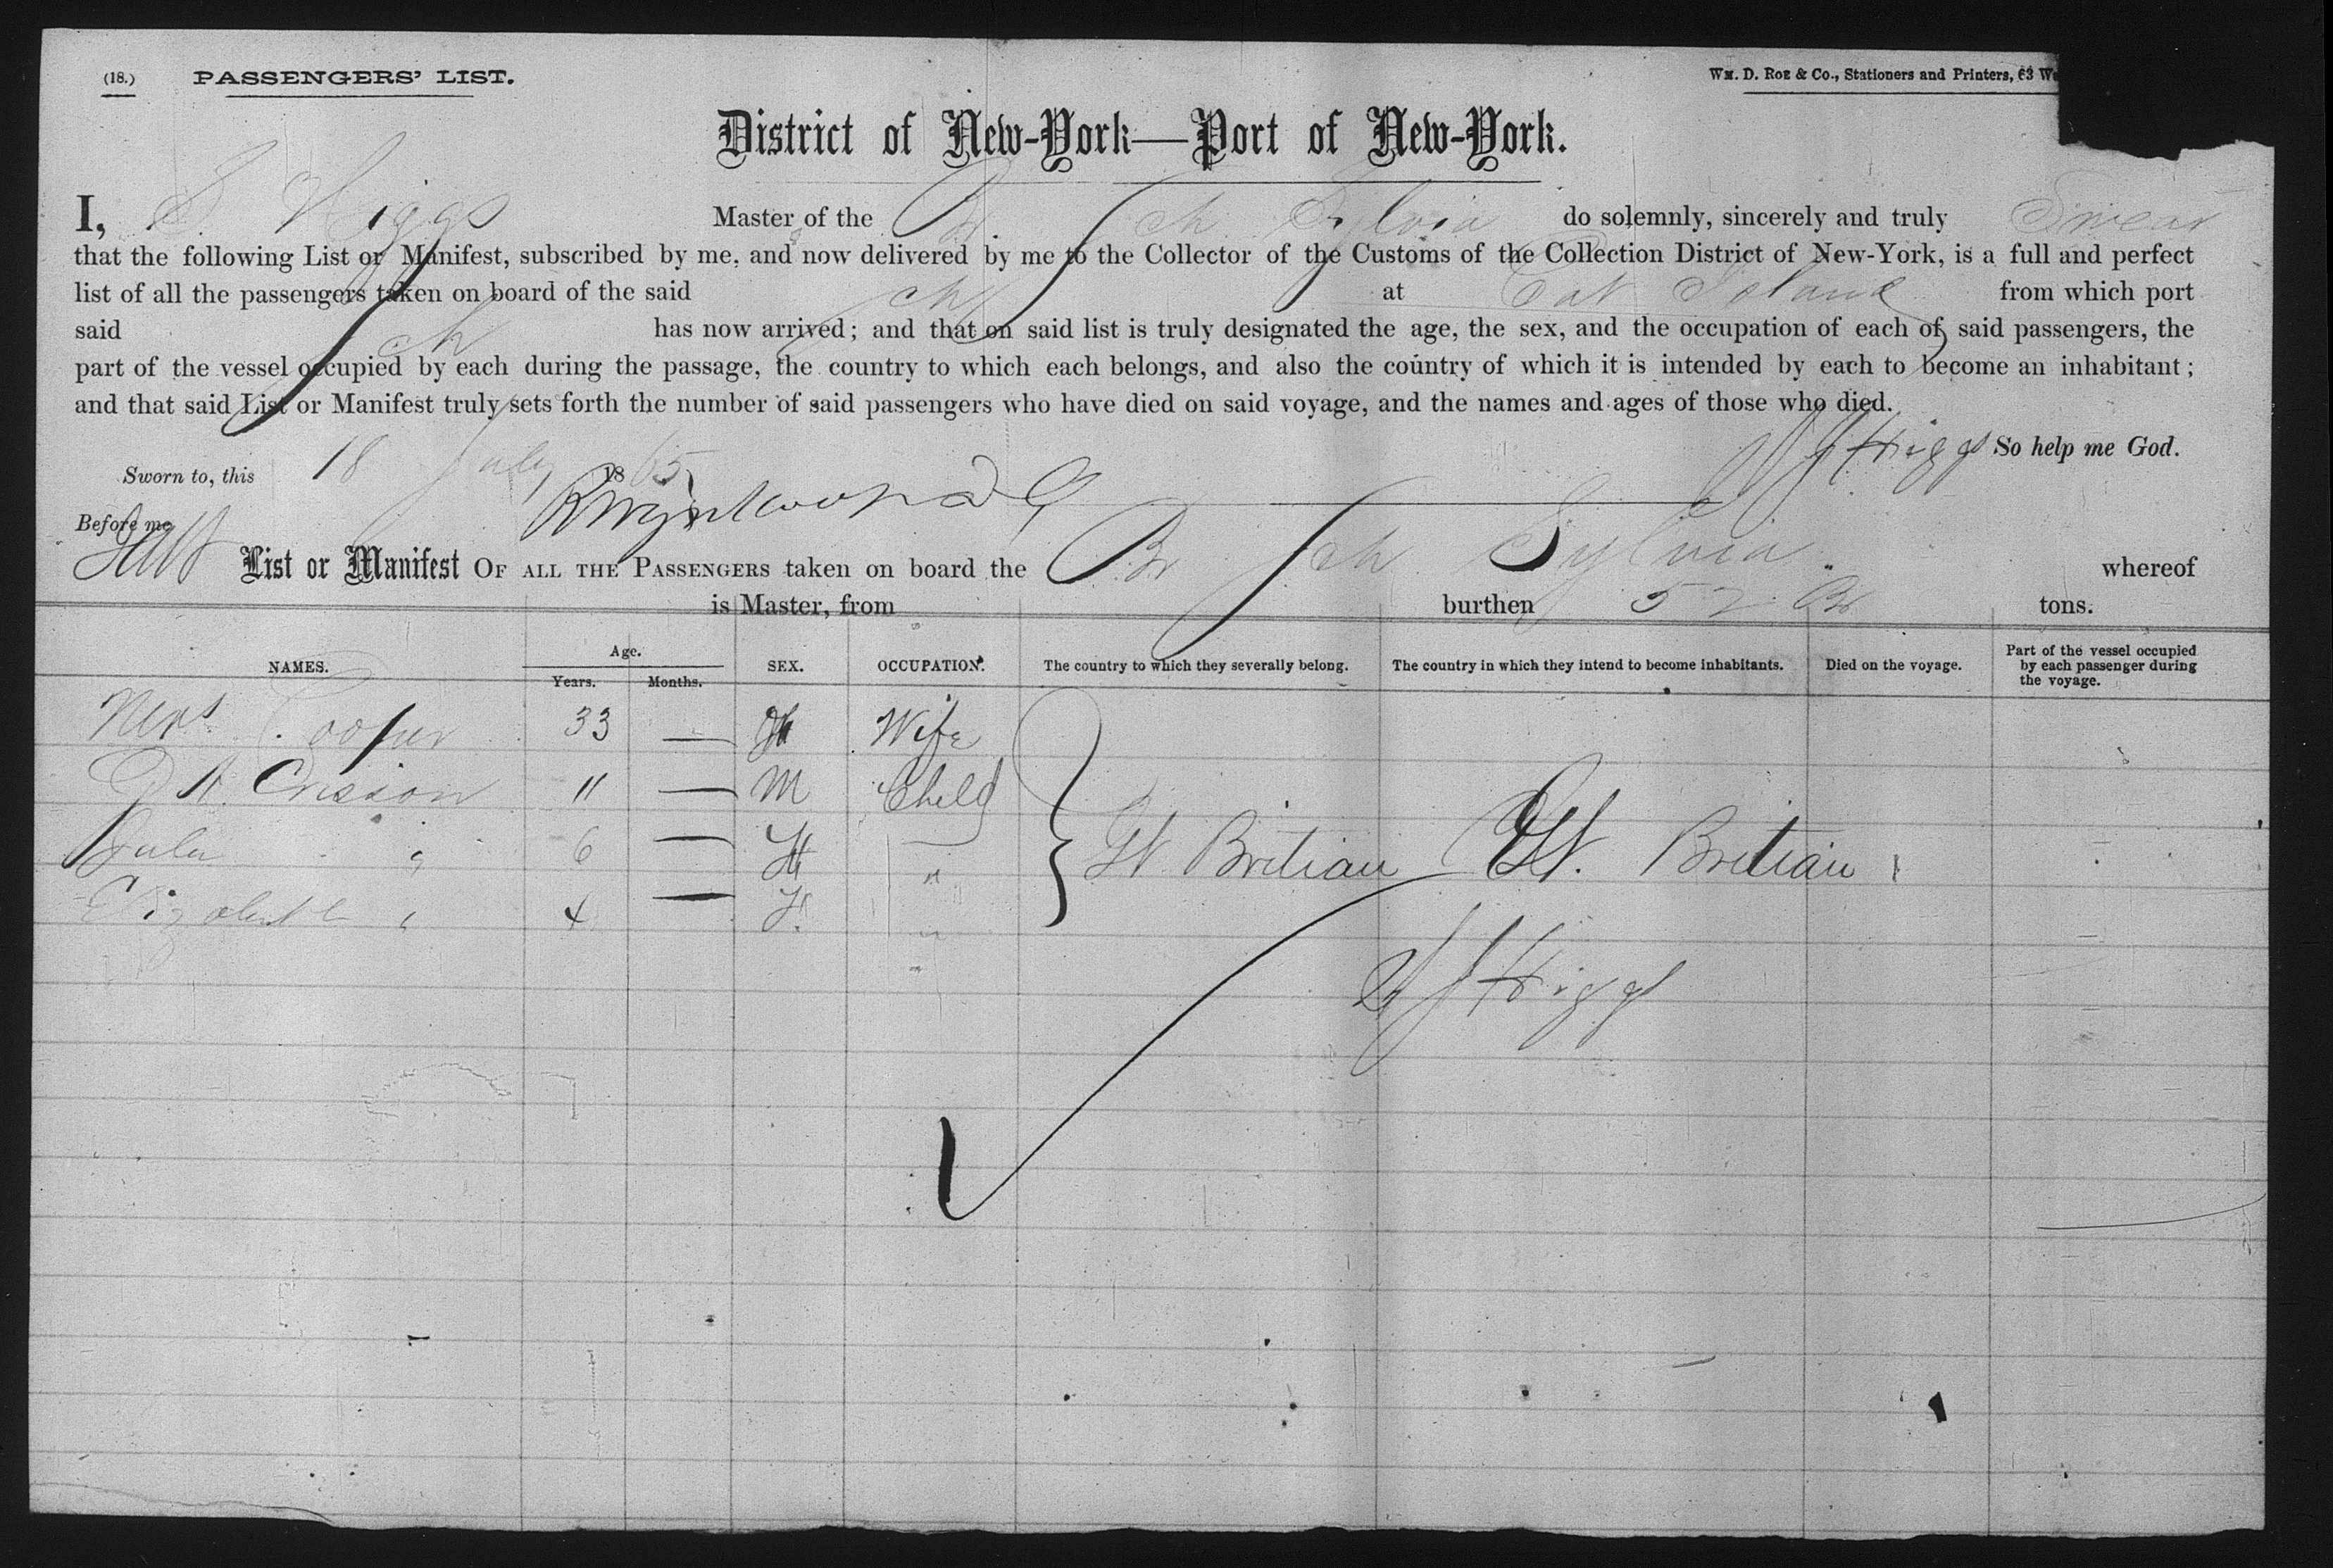 (18.) PASSENGERS' LIST. Wm. D. Roe & Co., Stationers and Printers, 63 W
District of New-York—Port of New-York.
I, S Higgs Master of the Br Sch Sylvia do solemnly, sincerely and truly Swear
that the following List or Manifest, subscribed by me, and now delivered by me to the Collector of the Customs of the Collection District of New-York, is a full and perfect
list of all the passengers taken on board of the said Sch at Cat Island from which port
said Sch has now arrived; and that on said list is truly designated the age, the sex, and the occupation of each of said passengers, the
part of the vessel occupied by each during the passage, the country to which each belongs, and also the country of which it is intended by each to become an inhabitant;
and that said List or Manifest truly sets forth the number of said passengers who have died on said voyage, and the names and ages of those who died.
Higgs So help me God.
Sworn to, this 18 July 1865
Before me
List or Manifest OF ALL THE PASSENGERS taken on board the Br Sch Sylvia whereof
is Master, from burthen 52 tons.
NAMES. Age. Years. Months. SEX. OCCUPATION. The country to which they severally belong. The country in which they intend to become inhabitants. Died on the voyage. Part of the vessel occupied by each passenger during the voyage.
Mrs Cooper 33 — Wife
11 — M Child
6 — F "
Elizabeth " 4 — F. "
Gt Britian Gt. Britian
Higgs